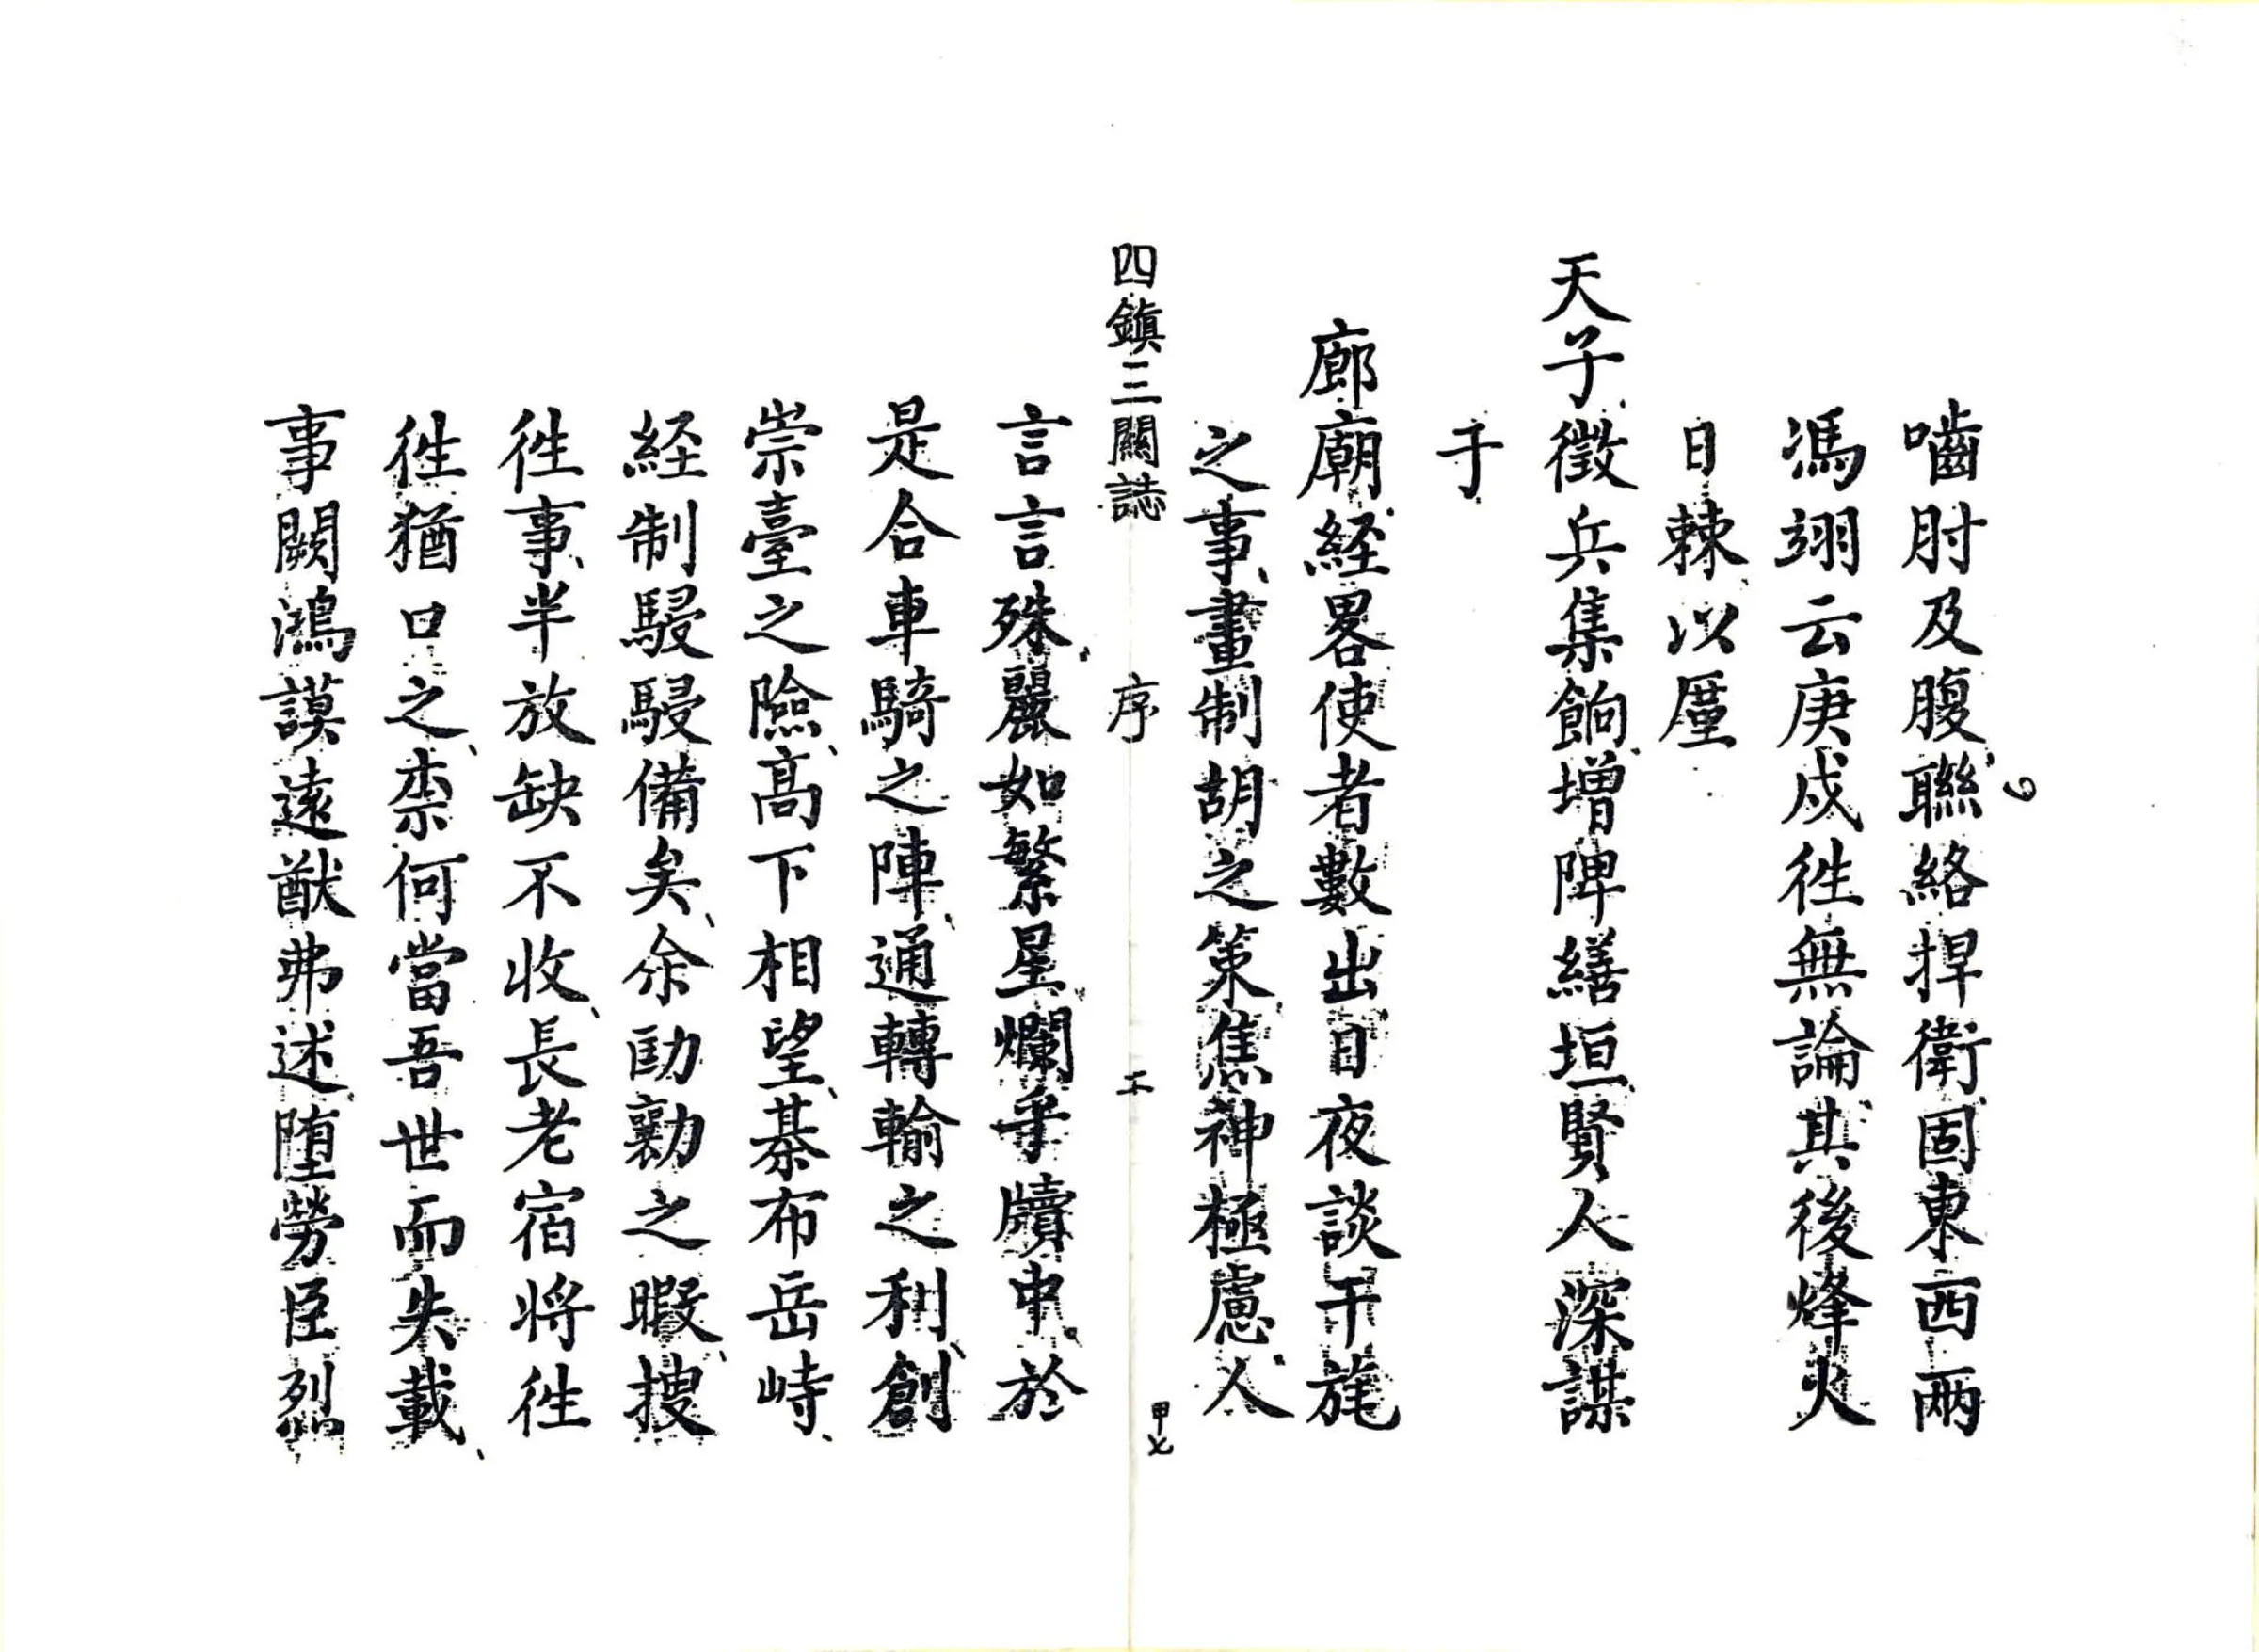 嚙肘及腹聯絡捍衛固東西兩
馮翊云庚戌徃無論其後烽火
日棘以厪
天子徵兵集餉增陴繕垣賢人深謀
于
廊廟経畧使者數出日夜談干旄
之事畫制胡之策焦神極慮人
四鎮三關誌 序 甲七
言言殊麗如繁星爛乎牘中於
是合車騎之陣通轉輸之利創
崇臺之險高下相望棊布岳峙
経制駸駸備矣余劻勷之暇搜
徃事半放缺不收長老宿将徃
徃猶口之柰何當吾世而失載
事闕鴻謨遠猷弗述墮勞臣烈